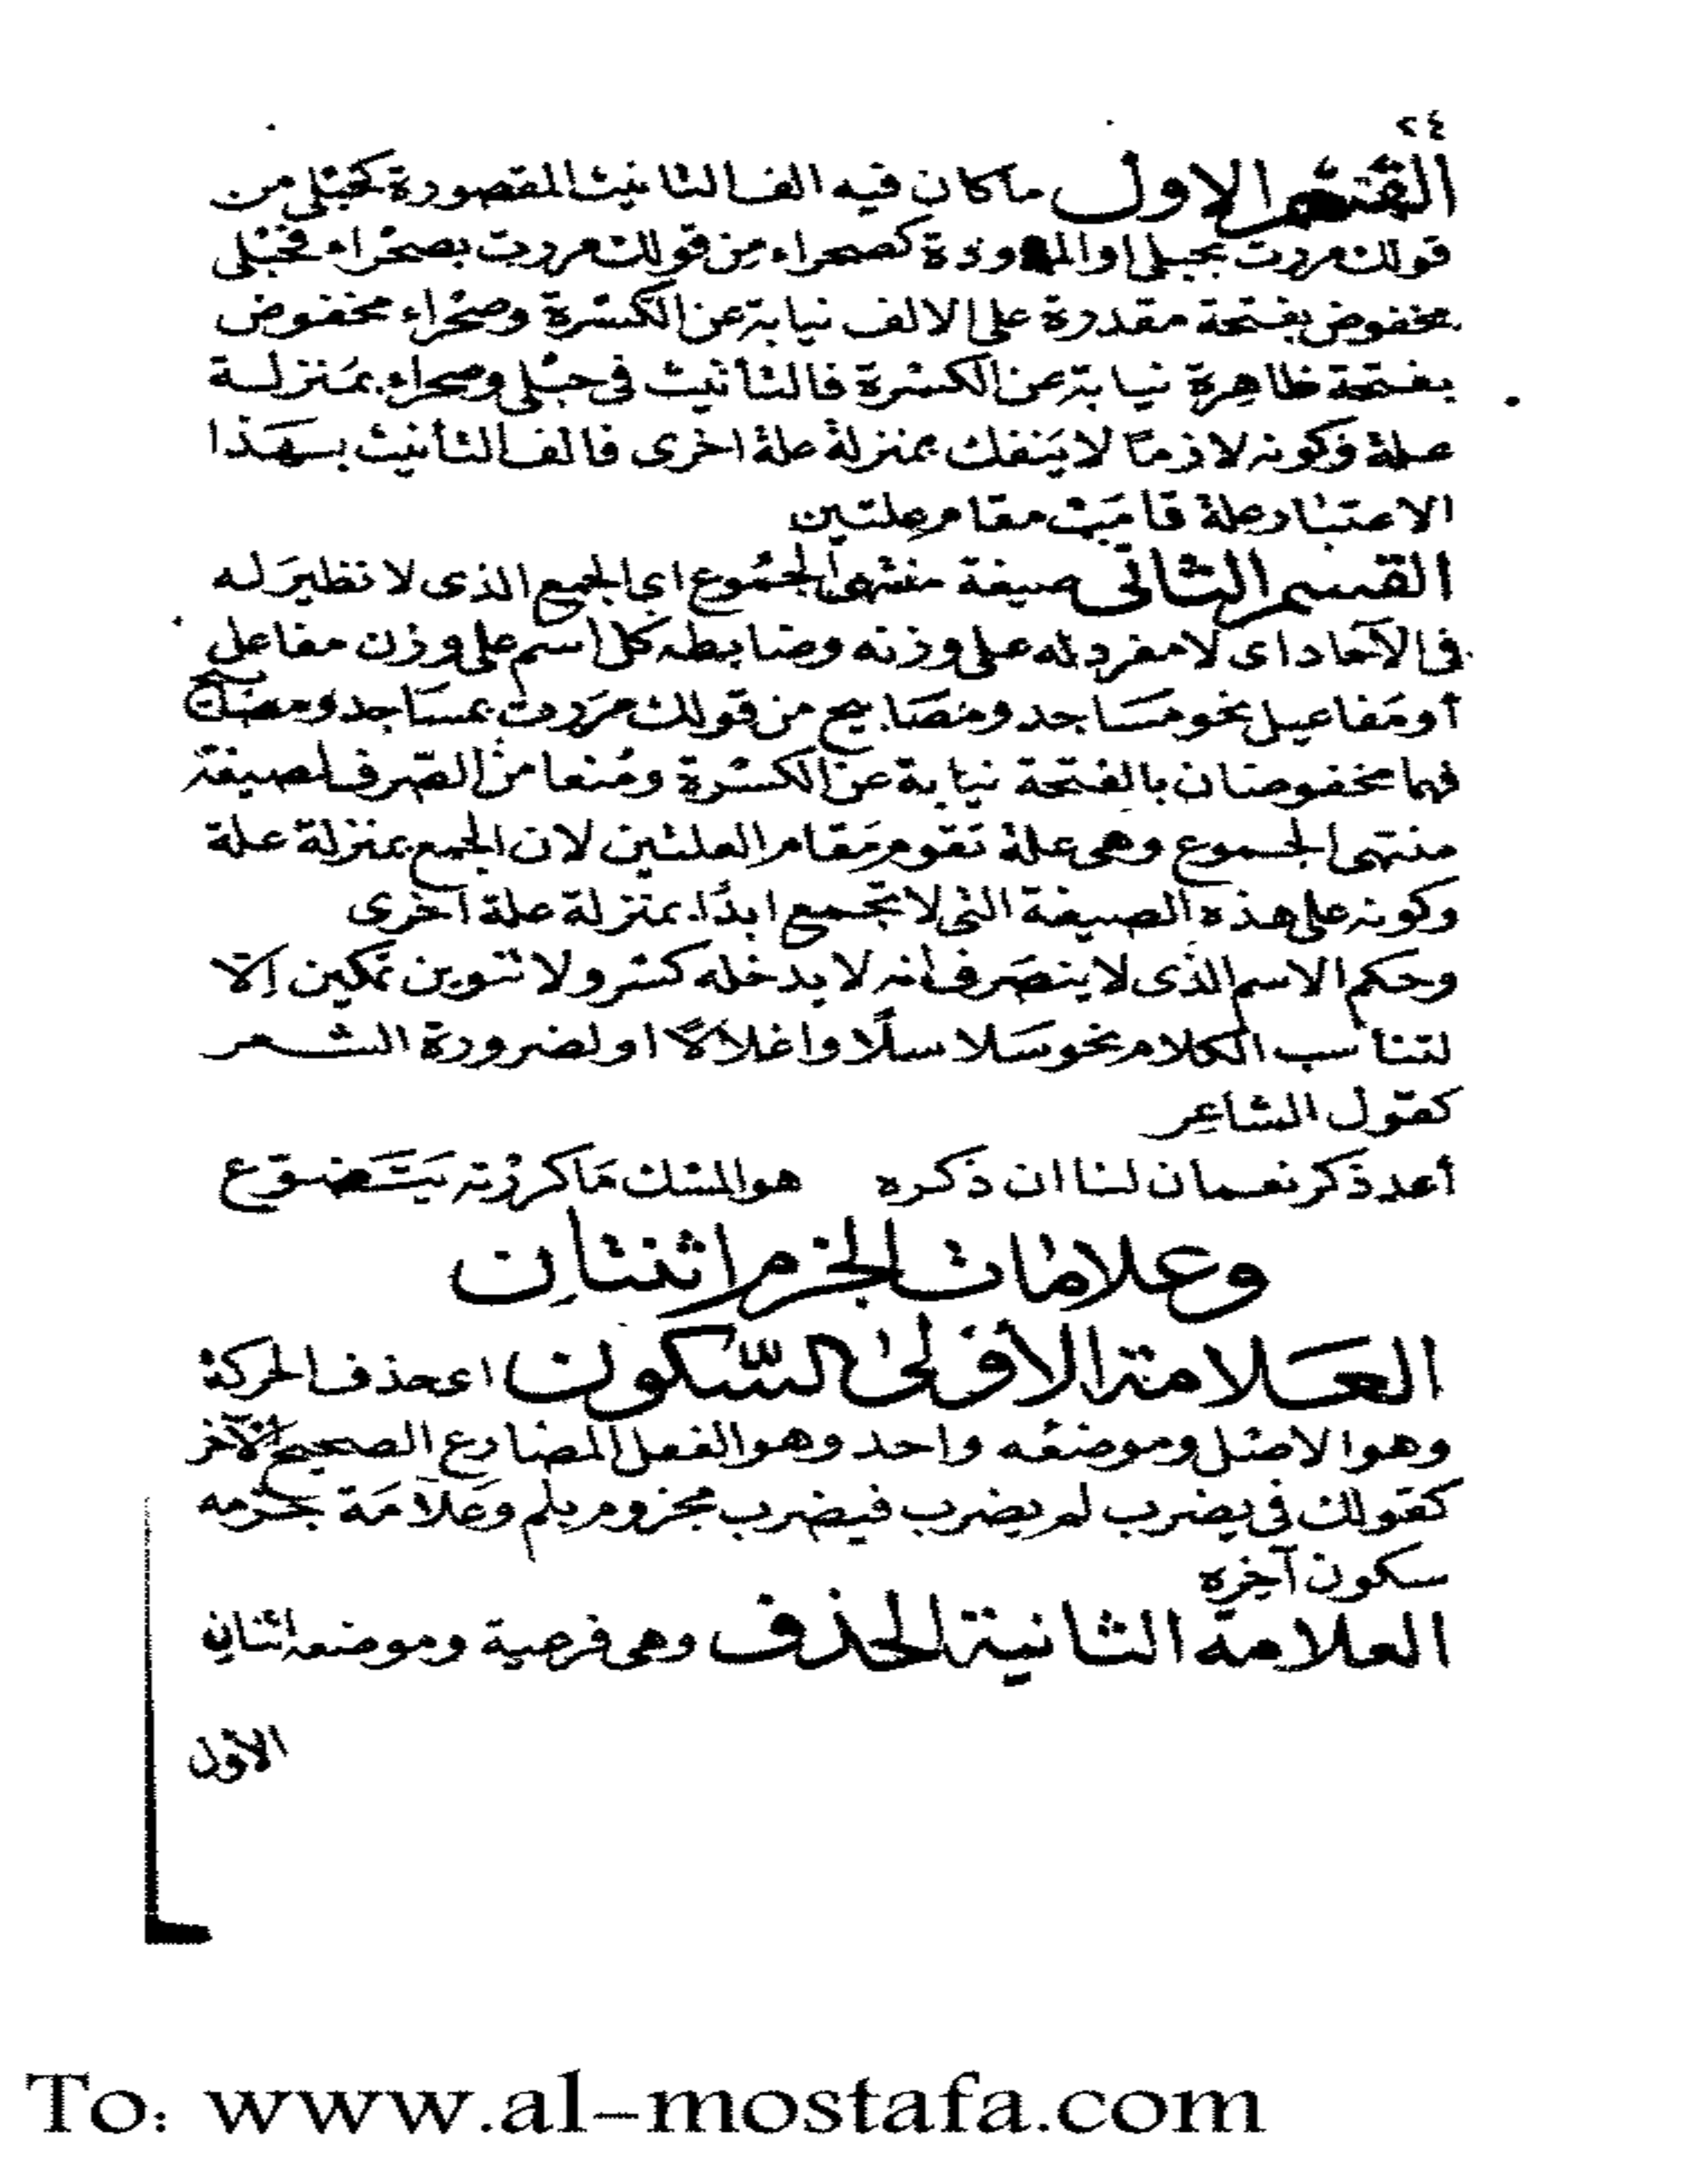 ٢٤
القسم الاول ماكان فيه الف التانيث المقصورة كحبلى من
قولك مررت بحبلى او الممدودة كصحراء من قولك مررت بصحراء فحبلى
مخفوض بفتحة مقدرة على الالف نيابة عن الكسرة وصحراء مخفوض
بفتحة ظاهرة نيابة عن الكسرة فالتأنيث فى حبلى وصحراء بمنزلة
علة وكونه لازمًا لا ينفك بمنزلة علة اخرى فالف التأنيث بهذا
الاعتبار علة قامت مقام علتين
القسم الثانى صيغة منتهى الجموع اى الجمع الذى لا نظير له
فى الآحاد اى لا مفرد له على وزنه وضابطه كل اسم على وزن مفاعل
أو مفاعيل نحو مساجد ومصابيح من قولك مررت بمساجد ومصابيح
فهما مخفوضان بالفتحة نيابة عن الكسرة ومُنعا من الصرف لصيغة
منتهى الجموع وهى علة تقوم مقام العلتين لان الجمع بمنزلة علة
وكونه على هذه الصيغة التى لا تجمع ابدًا بمنزلة علة اخرى
وحكم الاسم الذى لا ينصرف انه لا يدخله كسر ولا تنوين تمكين إلا
لتناسب الكلام نحو سلاسلًا واغلالًا او لضرورة الشعر
كقول الشاعر
أعد ذكر نعمان لنا ان ذكره هو المسك ما كررته يتضوع
وعلامات الجزم اثنتان
العلامة الأولى السكون اى حذف الحركة
وهو الاصل وموضعه واحد وهو الفعل المضارع الصحيح الآخر
كقولك فى يضرب لم يضرب فيضرب مجزوم بلم وعلامة جزمه
سكون آخره
العلامة الثانية الحذف وهى فرعية وموضعه اثنان
الأول
To: www.al-mostafa.com